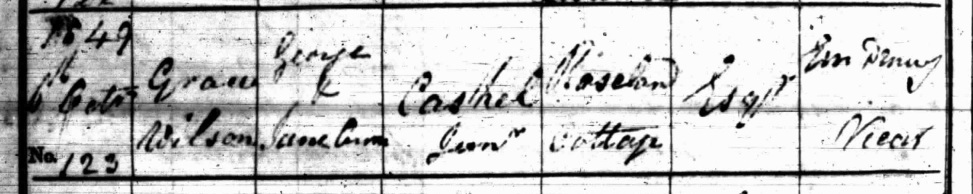 1849
6 Octr
No. 123
Grace
Wilson
George
&
Jane Cum
Cashel
Junr
Roseland
Cottage
Esqr
Em Denny
Vicar